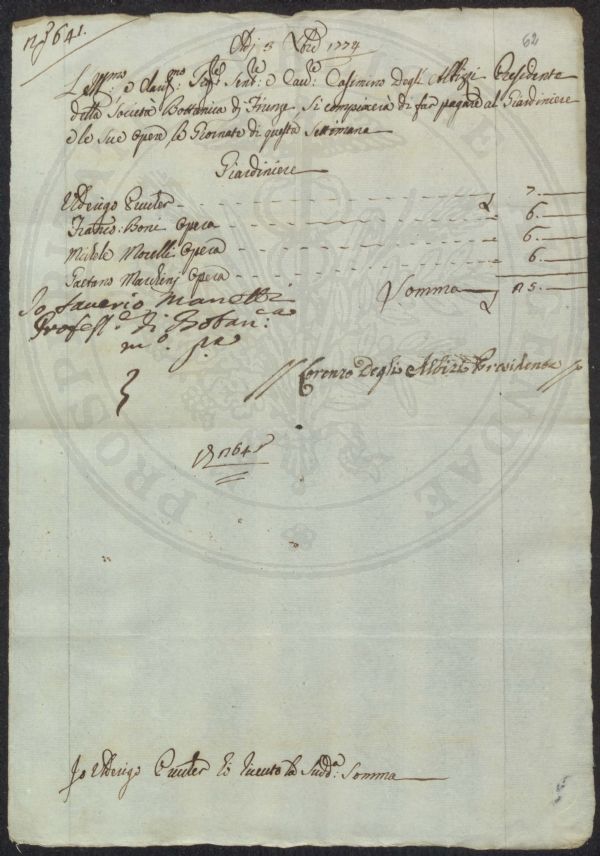 n.° 641.
62
Adj 3 Xbre 1774
L'Ill:mo e Clariss:mo Sig:re Sen:re e Cav:re Casimirro Degli Albizi Presidente
della Società Bottanica di Firenze, Si compiacerà di far pagare al Giardiniere
e le Sue Opere le Giornate di questa Settimana
Giardiniere
Ulderigo 7.
Franco: Boni Opera 6.
Michele Morelli Opera 6.
Gaetano Marchini Opera 6.
Somma 25.
Io Saverio Manetti
Profess.e di Botan:ca
m.o p.a
Lorenzo Degli Albizi Presidente
641
Io Ulderigo ho riceuto la Sudd:a Somma
PROSP